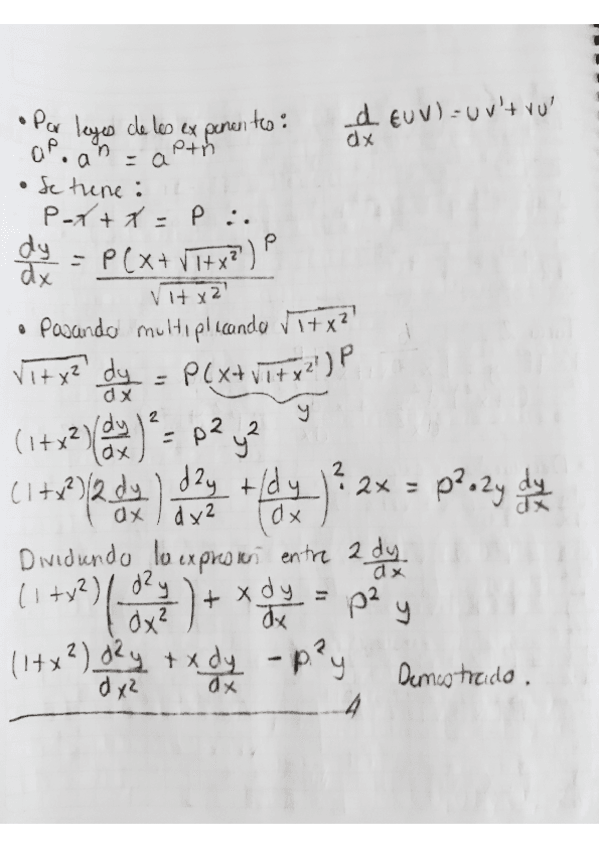 • Por leyes de los exponentes: d/dx (uv) = uv' + vu'
a^p · a^n = a^(p+n)
• Se tiene:
P - 1 + 1 = P ∴
dy/dx = P(x + √(1+x²))^P / √(1+x²)
• Pasando multiplicando √(1+x²)
√(1+x²) dy/dx = P(x + √(1+x²))^P
y
(1+x²)(dy/dx)² = p² y²
(1+x²)(2 dy/dx) d²y/dx² + (dy/dx)² · 2x = p² · 2y dy/dx
Dividiendo la expresión entre 2 dy/dx
(1+x²)(d²y/dx²) + x dy/dx = p² y
(1+x²) d²y/dx² + x dy/dx - p² y Demostrado.